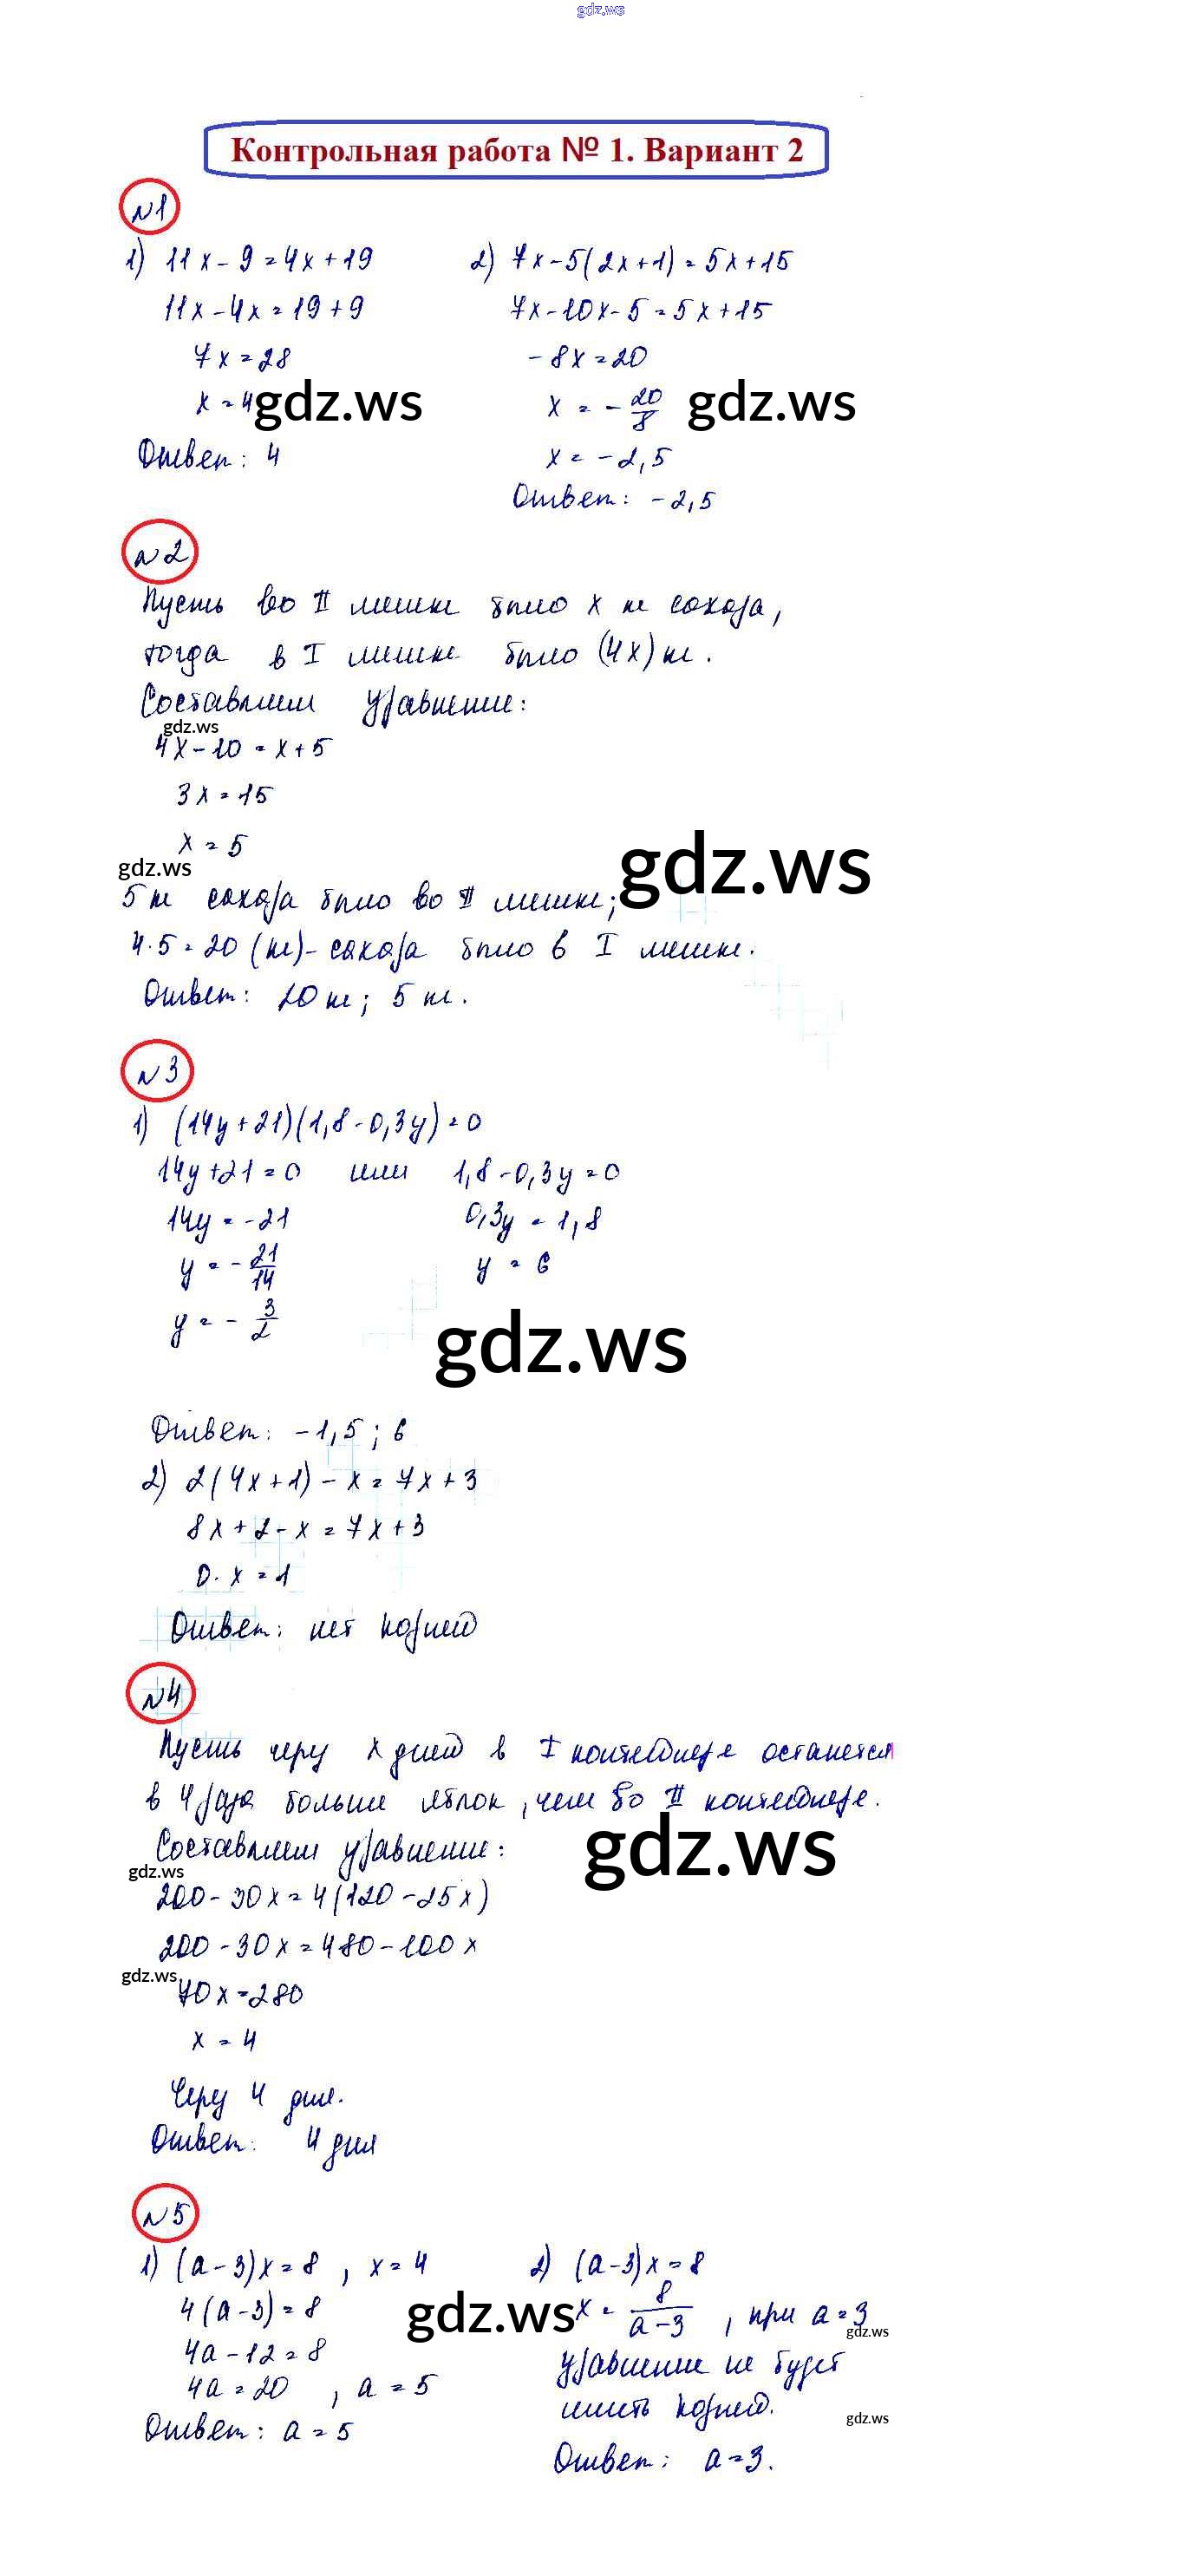 gdz.ws
Контрольная работа № 1. Вариант 2
№1
1) 11x - 9 = 4x + 19
11x - 4x = 19 + 9
7x = 28
x = 4
gdz.ws
Ответ: 4
2) 7x - 5(2x + 1) = 5x + 15
7x - 10x - 5 = 5x + 15
-8x = 20
x = - 20/8
gdz.ws
x = -2,5
Ответ: -2,5
№2
Пусть во II мешке было x кг сахара,
тогда в I мешке было (4x) кг.
Составим уравнение:
gdz.ws
4x - 10 = x + 5
3x = 15
x = 5
gdz.ws
gdz.ws
5 кг сахара было во II мешке;
4·5 = 20 (кг) - сахара было в I мешке.
Ответ: 20 кг; 5 кг.
№3
1) (14y + 21)(1,8 - 0,3y) = 0
14y + 21 = 0 или 1,8 - 0,3y = 0
14y = -21 0,3y = 1,8
y = - 21/14 y = 6
y = - 3/2
gdz.ws
Ответ: -1,5; 6
2) 2(4x + 1) - x = 7x + 3
8x + 2 - x = 7x + 3
0·x = 1
Ответ: нет корней
№4
Пусть через x дней в I контейнере останется
в 4 раза больше яблок, чем во II контейнере.
Составим уравнение:
gdz.ws
gdz.ws
200 - 30x = 4(120 - 25x)
200 - 30x = 480 - 100x
gdz.ws
70x = 280
x = 4
Через 4 дня.
Ответ: 4 дня
№5
1) (a - 3)x = 8, x = 4
4(a - 3) = 8
4a - 12 = 8
4a = 20, a = 5
Ответ: a = 5
gdz.ws
2) (a - 3)x = 8
x = 8/(a - 3), при a = 3
gdz.ws
уравнение не будет
иметь корней.
gdz.ws
Ответ: a = 3.